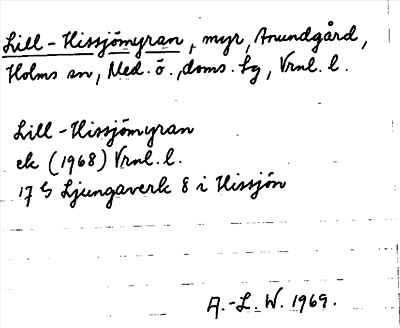 Lill-Hissjömyran, myr, Anundgård,
Holms sn, Med. ö., doms. sg, Vrnl. l.
Lill-Hissjömyran
ek (1968) Vrnl. l.
17 G Ljungaverk 8 i Hissjön
A.-L. W. 1969.